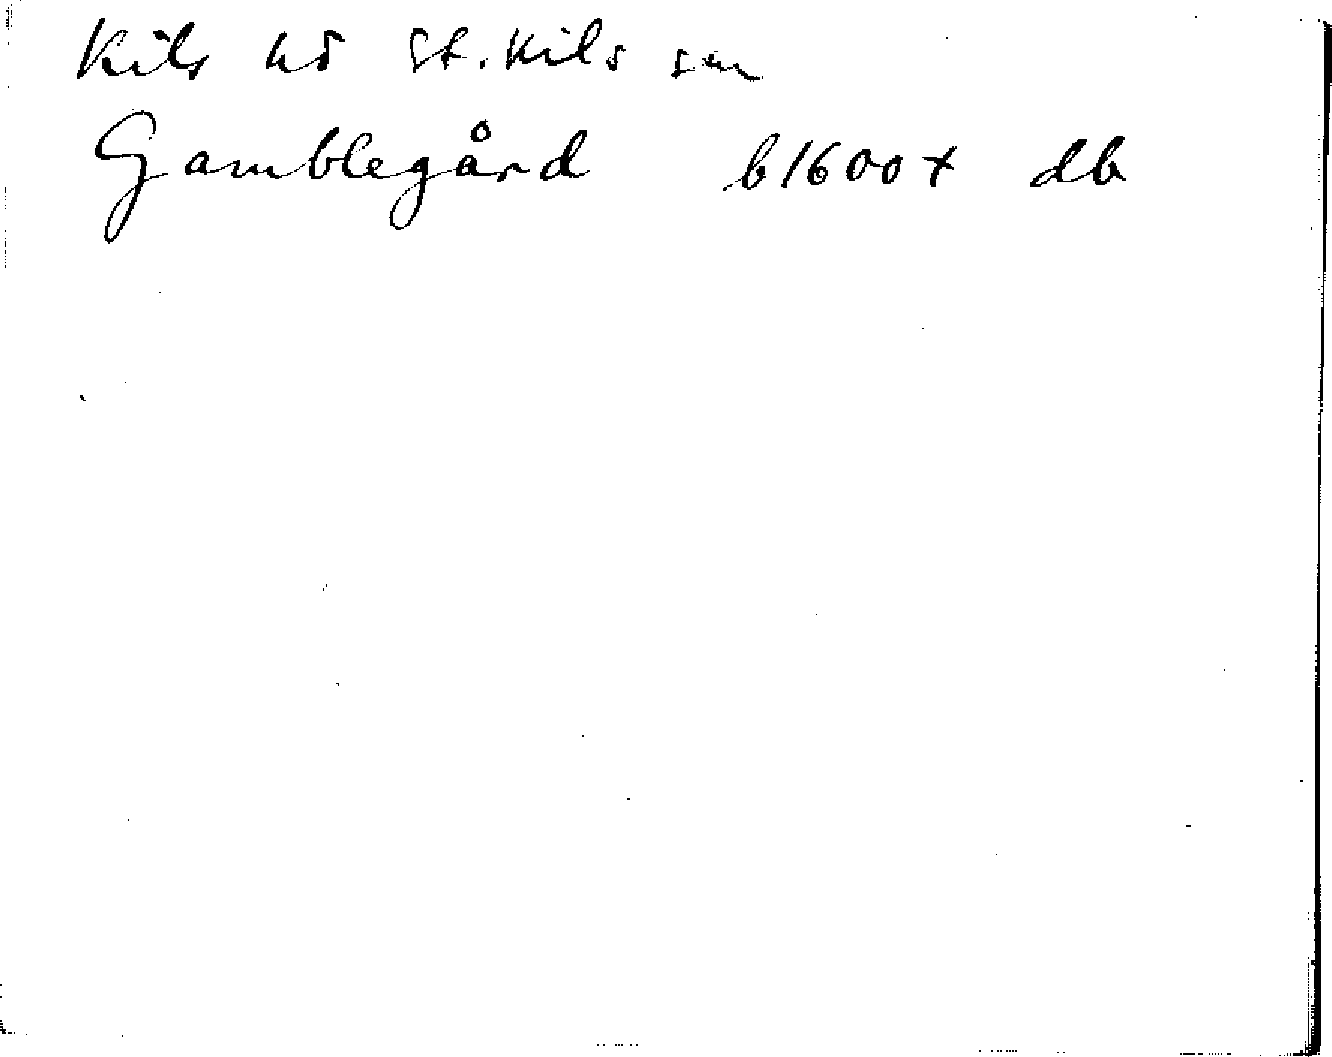 Kils hd St. Kils sn
Gamblegård b1600+ db